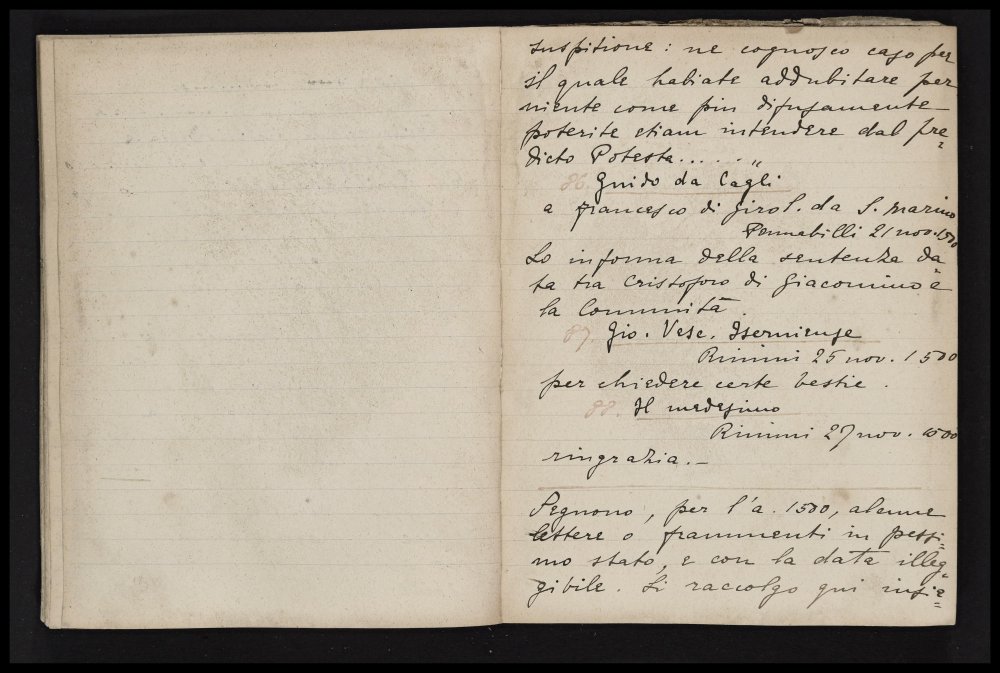 suspitione: ne cognosco caso per
il quale habiate addubitare per
niente come piu difusamente
poterite etiam intendere dal pre=
dicto Potesta......„
86. Guido da Cagli
a francesco di Girol. da S. Marino
Pennabilli 21 nov. 1500
Lo informa della sentenza da=
ta tra Cristoforo di Giacomino e
la Comunità.
87. Gio. Vesc. Iserniense
Rimini 25 nov. 1500
per chiedere certe bestie.
88. Il medesimo
Rimini 27 nov. 1500
ringrazia.—
Seguono, per l'a. 1500, alcune
lettere o frammenti in pessi=
mo stato, e con la data illeg=
gibile. Li raccolgo qui insie=